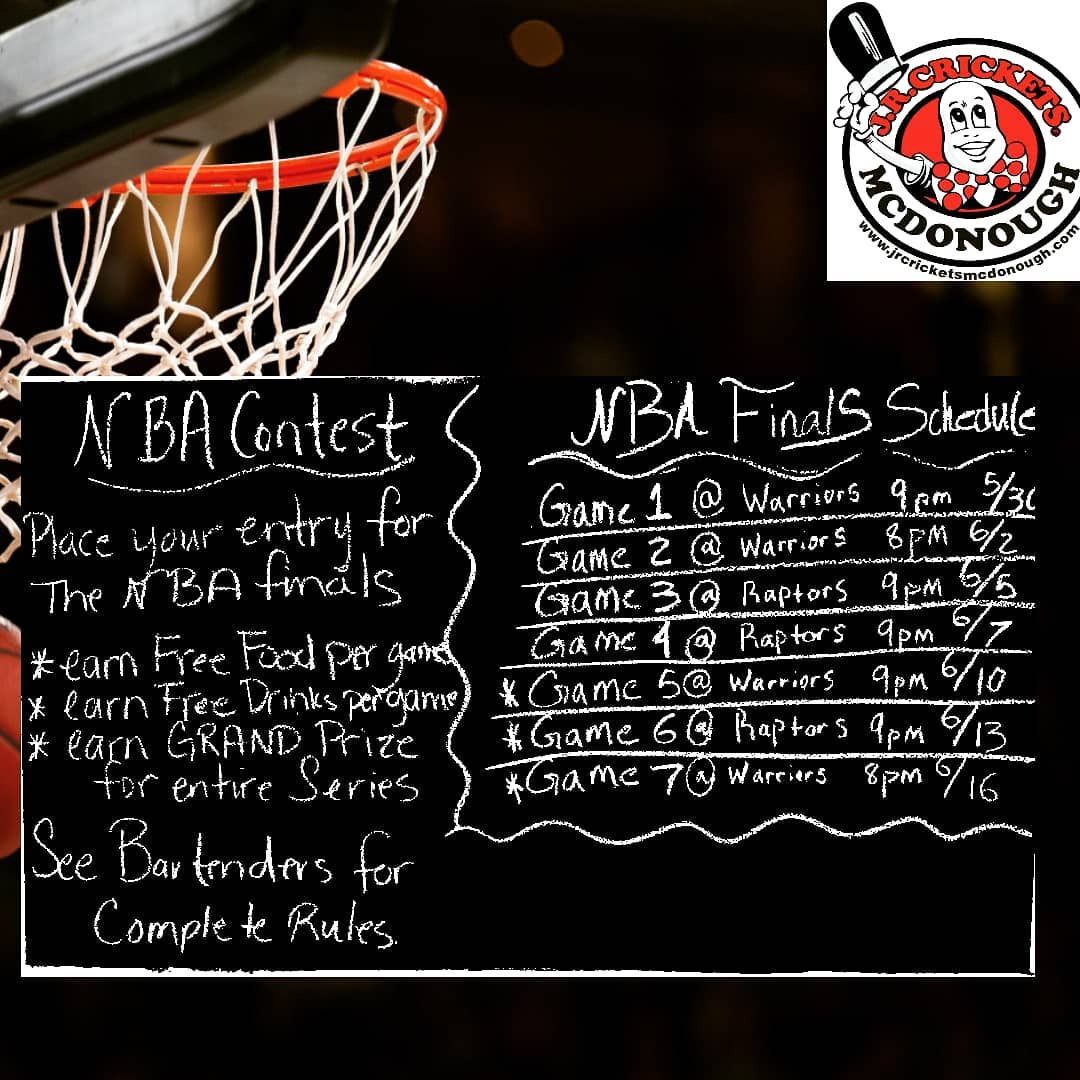 J.R.CRICKETS.
MCDONOUGH
www.jrcricketsmcdonough.com
NBA Contest
Place your entry for
The NBA finals
* earn Free Food per game
* earn Free Drinks per game
* earn GRAND Prize
for entire Series
See Bartenders for
Complete Rules.
NBA Finals Schedule
Game 1 @ Warriors 9pm 5/30
Game 2 @ Warriors 8pm 6/2
Game 3 @ Raptors 9pm 6/5
Game 4 @ Raptors 9pm 6/7
* Game 5 @ Warriors 9pm 6/10
* Game 6 @ Raptors 9pm 6/13
* Game 7 @ Warriors 8pm 6/16